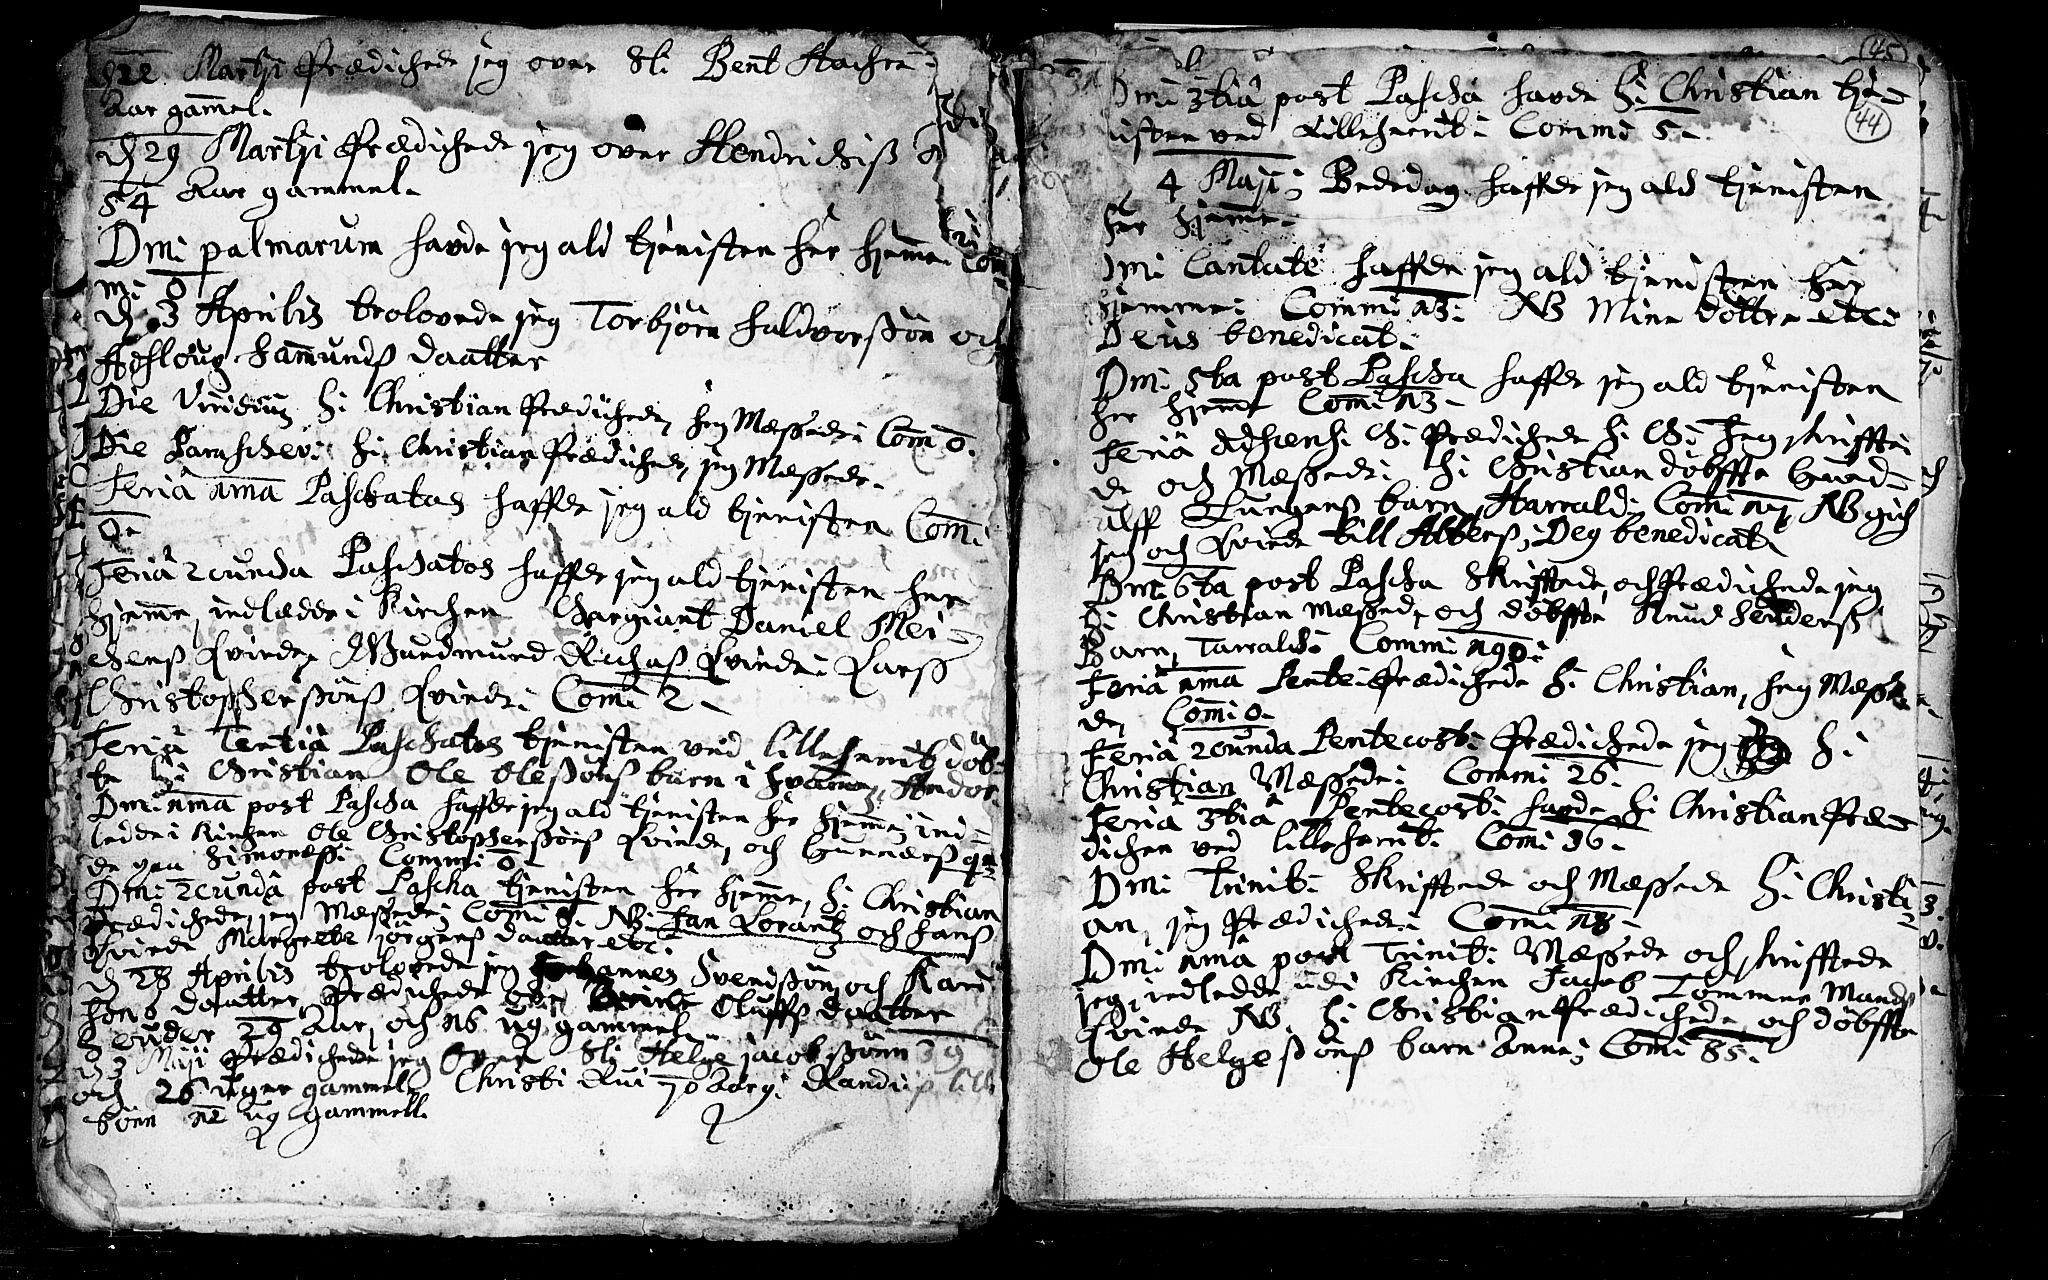 Martji Prædichede jeg over Sl: Bent
Aar gammel.
d 29 Martji Prædichede jeg over
54 Aar gammel.
Dmi: palmarum havde jeg ald tjenisten her hjemme Com
mi: 0
d. 3 Aprilis trolovede jeg Torbjörn Haldvorssön och
Aasloug Hamunds daatter
Die Viridium H: Christian Prædichede, jeg Messede: Com 0.
Die Paraschev: H: Christian Prædichede, jeg Messede.
Feriâ 1ma Paschatos haffde jeg ald tjenisten Com:
0.
Feriâ 2cunda Paschatos haffde jeg ald tjenisten her
hjemme, indledde i Kirchen Sergiant Daniel Mei-
Kvinde, Gudmund Kvinde: Larss
Christopherssöns Kvinde: Comi 2.
Feriâ Tertiâ Paschatos tjenisten ved Lilleherrit döb-
te H: Christian Ole Olessöns barn i
Dmi: 1ma post Pascha haffde jeg ald tjenisten her hjemme, ind-
ledde i Kirchen Ole Christopherssöns Kvinde, och Gunders
Commi 0.
Dmi: 2cundâ post Pascha tjenisten her hjemme, H: Christian
Prædichede, jeg Messede; Comi NB. Jan Lorantz och Hans
Kvinde Margrete Jörgens daatter etc:
d 28 Aprilis trolovede jeg Johannes Svendssön och Kari
daatter, Prædichede over Oluffs daatter
29 Aar, och 16 ug gammel.
d 3 Maji Prædichede jeg over Sl: Helge Jacobssönn 39
och 26 uger gammel, Christi Rui 70 Aar; Randi
Sönn 12 ug gammell.
45
44
Dmi 3tiâ post Pascha havde H: Christian tje-
nisten ved Lilleherrit: Commi 5.
4 Maji; Bededag haffde jeg ald tjenisten
her hjemme.
Dmi: Cantate haffde jeg ald tjenisten her
hjemme: Commi 13: NB Mine döttre etc:
Deus benedicat.
Dmi 5ta post Pascha haffde jeg ald tjenisten
her hjemme Comi 13.
Feriâ Adscens: Prædichede H: Jeg skriffte-
de och Messede: H: Christian döbffte Gund-
ulff barn, Harrald: Comi NB gich
jeg och Kvinde till Alters; Deus benedicat
Dmi: 6ta post Pascha Skrifftede, och Prædichede jeg
H: Christian Messede, och döbffte Knud
Barn, Tarrald: Commi 190:
Feriâ 1ma Pente: Prædichede H: Christian, jeg Messe-
de, Comi 0.
Feriâ 2cunda Pentecost: Prædichede jeg H:
Christian Messede: Commi 26.
Feriâ 3tiâ Pentecost: havde H: Christian Præ-
dichen ved Lilleherrit: Comi 36.
Dmi Trinit: Skrifftede och Messede H: Christi-
an, jeg Prædichede: Comi 18.
Dmi 1ma post Trinit: Messede och skrifftede
jeg, indledde udi Kirchen Jacob Tömmer Mands
Kvinde NB. H: Christian Prædichede, och döbffte
Ole Helgessöns barn Anne; Comi 85.